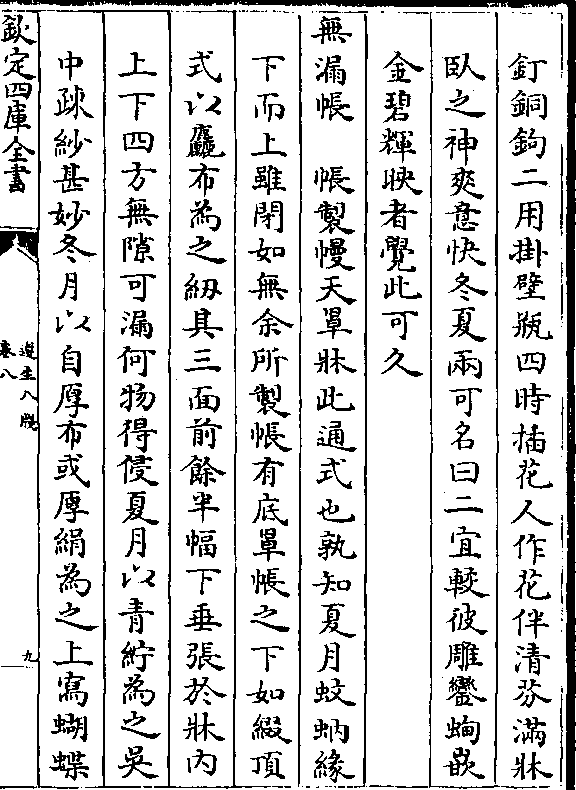 釘銅鉤二用掛壁瓶四時揷花人作花伴清芬滿牀
臥之神爽意快冬夏兩可名曰二宜較彼雕鑾蜔嵌
金碧輝映者覺此可久
無漏帳　帳製幔天罩牀此通式也孰知夏月蚊蚋緣
下而上雖閉如無余所製帳有底罩帳之下如綴頂
式以麤布為之紉其三面前餘半幅下垂張於牀内
上下四方無隙可漏何物得侵夏月以青紵為之吳
中疎紗甚妙冬月以自厚布或厚絹為之上寫蝴蝶
欽定四庫全書
遵生八牋
卷八
九